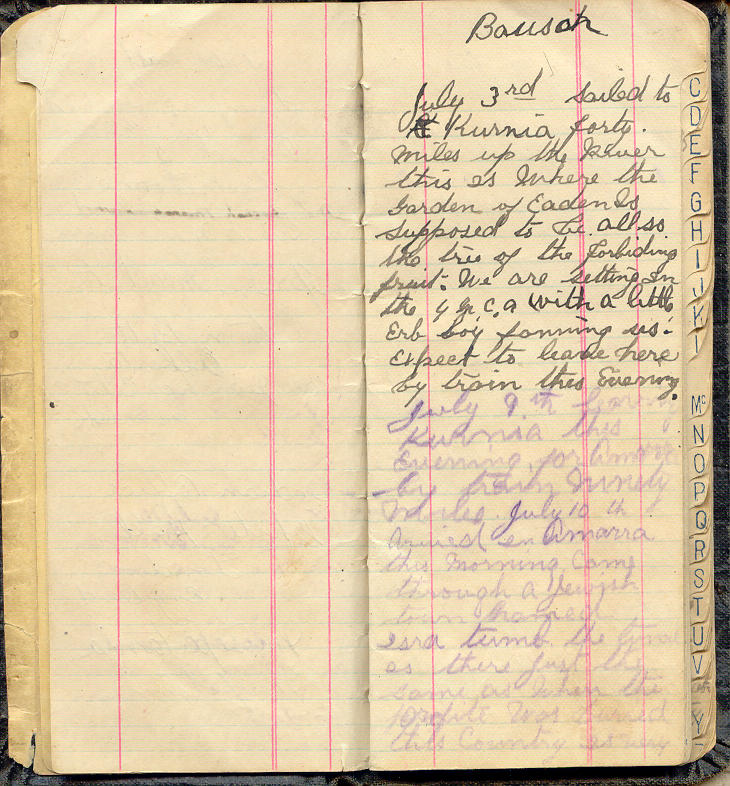 Bausch
July 3rd Sailed to
Kurnia forty
miles up the River
this is Where the
Garden of Eaden Is
supposed to be. allso.
the tree of the forbiding
fruit. We are setting in
the y m c. a with a little
Erb boy fanning us.
Expect to leave here
by train this Evening.
July 9th
Kurnia this
Evening, for Amarra
by train Ninety
Miles. July 10 th
Arived en Amarra
this Morning Came
through a Jewish
town named
Isra tumb. the
as there just the
same as When the
Was Buried
this Country is very
C
D
E
F
G
H
I
J
K
L
Mc
N
O
P
Q
R
S
T
U
V
Y